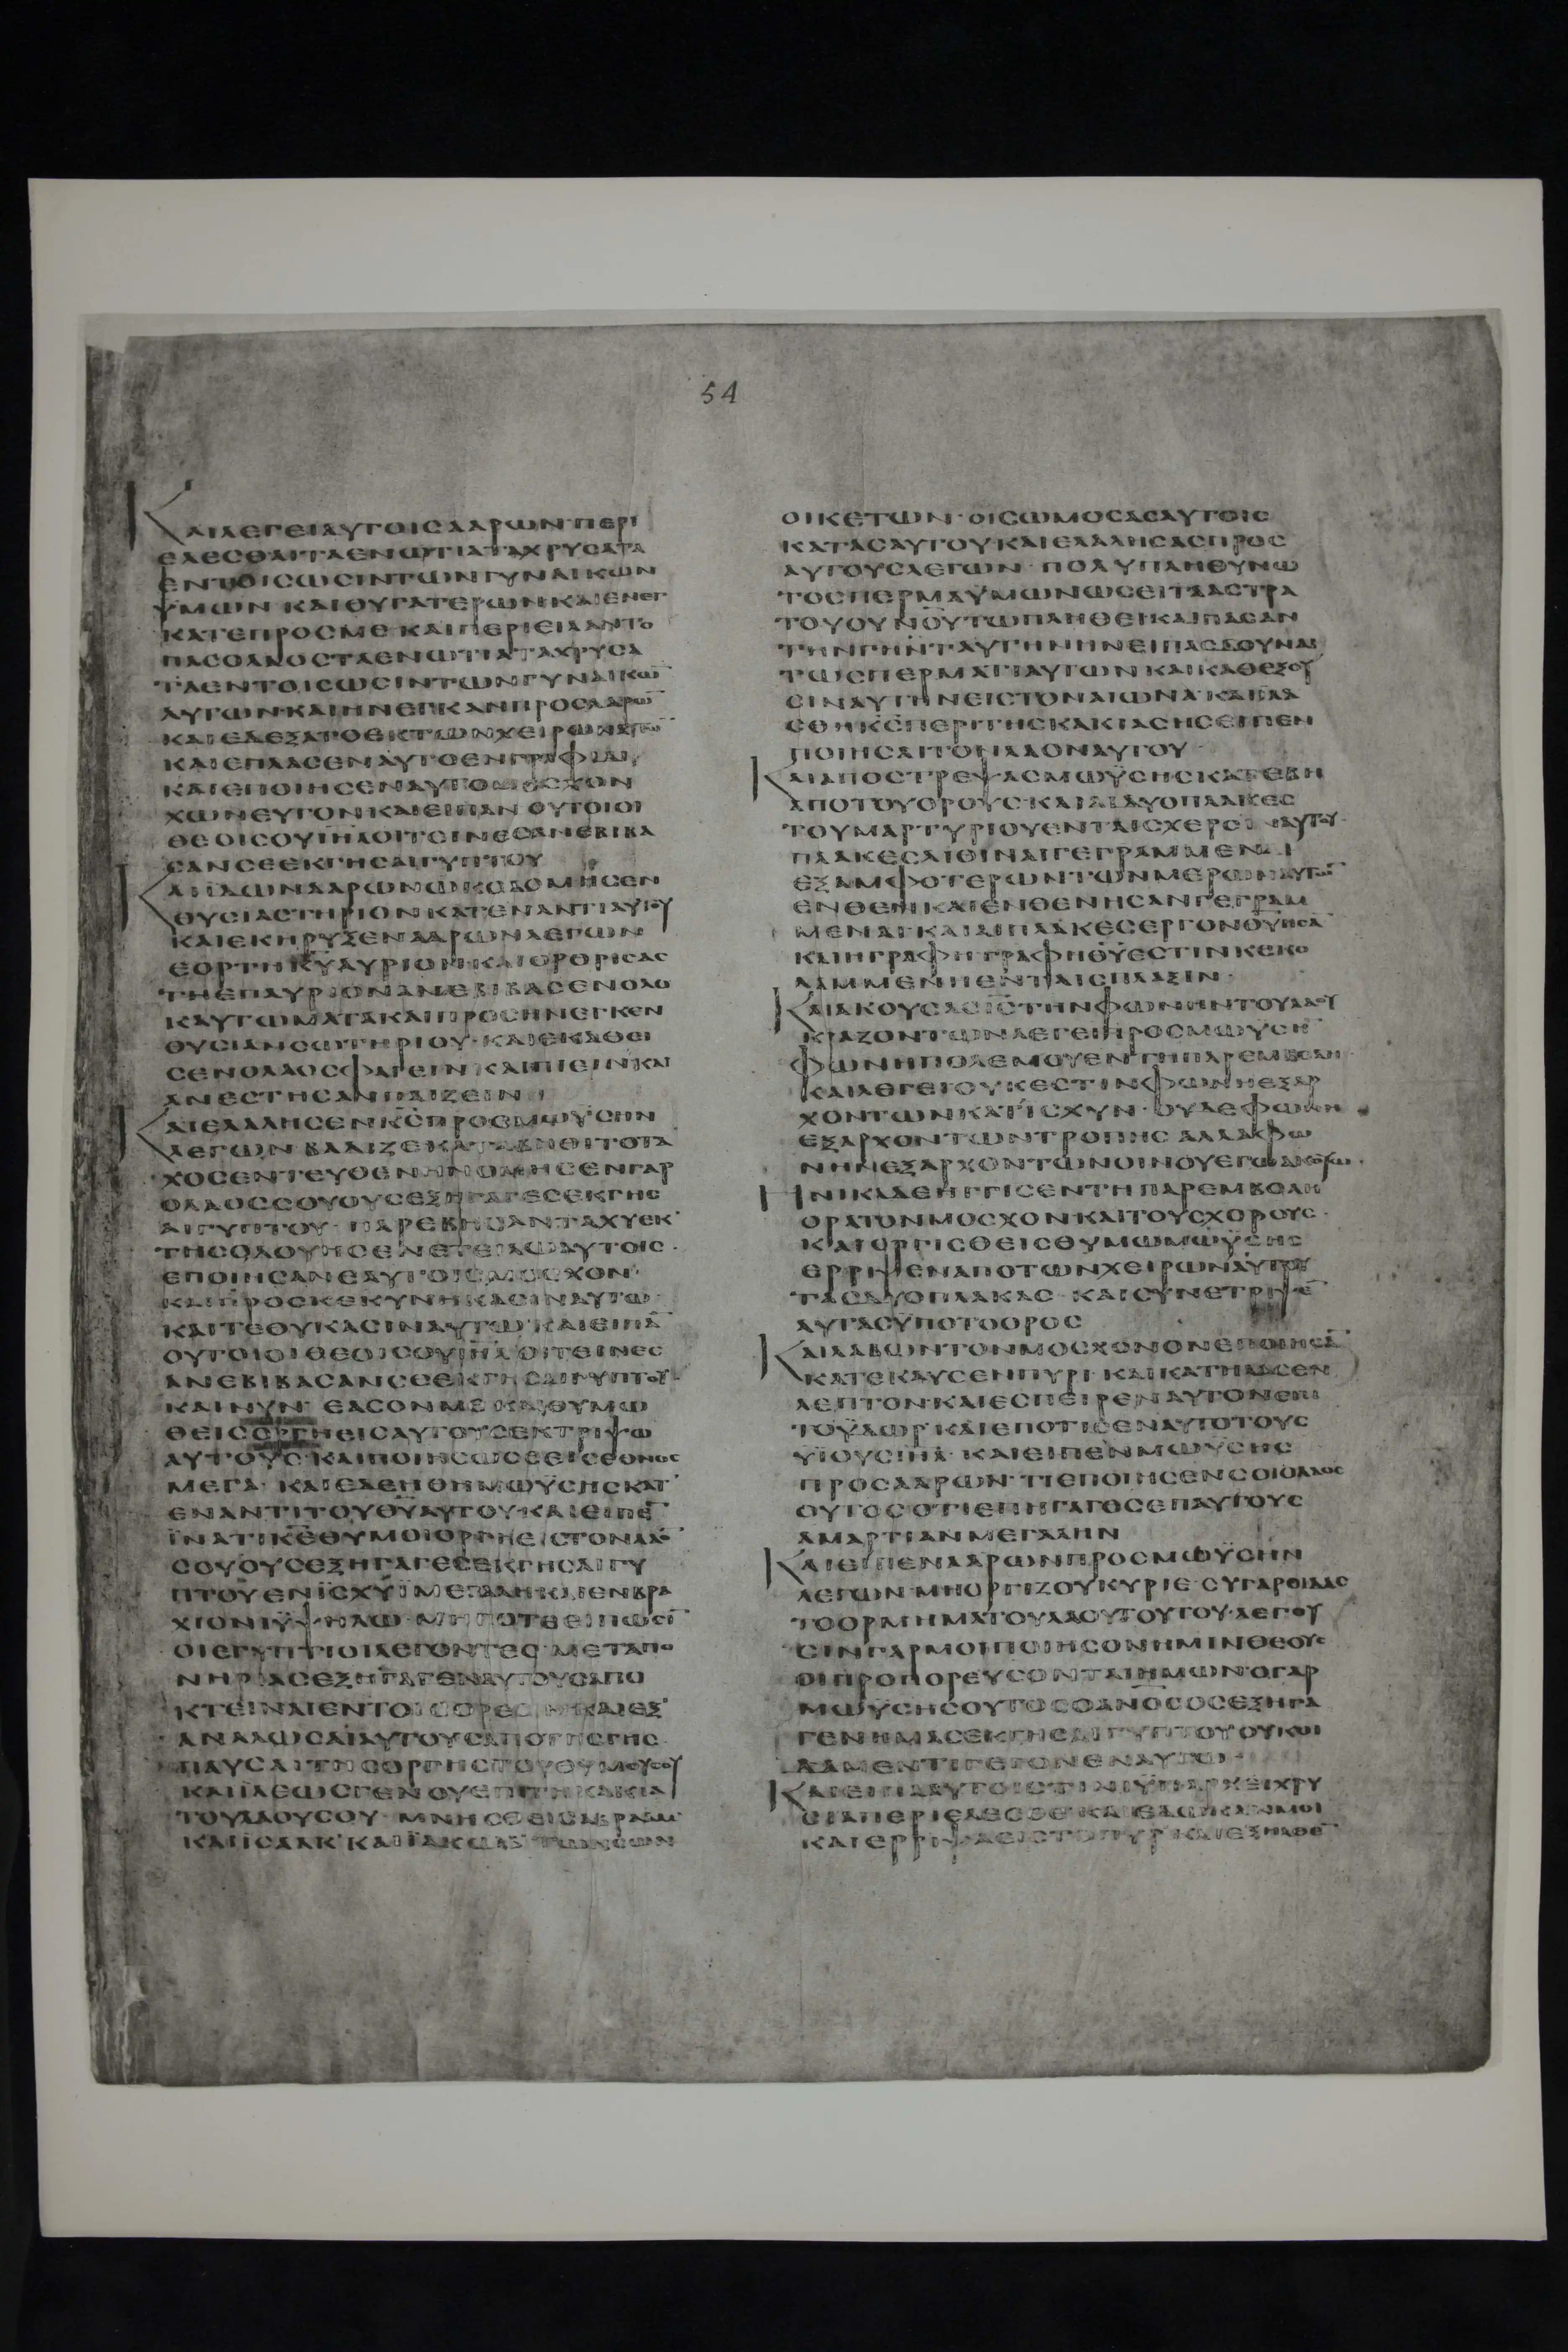 54
ΚΑΙΛΕΓΕΙΑΥΤΟΙΣΑΑΡΩΝ·ΠΕΡΙ
ΕΛΕΣΘΑΙΤΑΕΝΩΤΙΑΤΑΧΡΥΣΑΤΑ
ΕΝΤΟΙΣΩΣΙΝΤΩΝΓΥΝΑΙΚΩΝ
ΫΜΩΝ·ΚΑΙΘΥΓΑΤΕΡΩΝ·ΚΑΙΕΝΕΓ
ΚΑΤΕΠΡΟΣΜΕ·ΚΑΙΠΕΡΙΕΙΛΑΝΤΟ
ΠΑΣΟΛΑΟΣΤΑΕΝΩΤΙΑΤΑΧΡΥΣΑ
ΤΑΕΝΤΟΙΣΩΣΙΝΤΩΝΓΥΝΑΙΚΩ̅
ΑΥΤΩΝ·ΚΑΙΗΝΕΓΚΑΝΠΡΟΣΑΑΡΩ̅
ΚΑΙΕΔΕΞΑΤΟΕΚΤΩΝΧΕΙΡΩΝΑΥΤΩ̅
ΚΑΙΕΠΛΑΣΕΝΑΥΤΟΕΝΓΡΑΦΙΔΙ
ΚΑΙΕΠΟΙΗΣΕΝΑΥΤΟΜΟΣΧΟΝ
ΧΩΝΕΥΤΟΝ·ΚΑΙΕΙΠΑΝ ΟΥΤΟΙΟΙ
ΘΕΟΙΣΟΥΙ̅Η̅Λ̅ΟΙΤΟΙΝΕΣΑΝΕΒΙΒΑ
ΣΑΝΣΕΕΚΓΗΣΑΙΓΥΠΤΟΥ
ΚΑΙΪΔΩΝΑΑΡΩΝΩΚΟΔΟΜΗΣΕΝ
ΘΥΣΙΑΣΤΗΡΙΟΝΚΑΤΕΝΑΝΤΙΑΥΤΟΥ
ΚΑΙΕΚΗΡΥΞΕΝΑΑΡΩΝΛΕΓΩΝ
ΕΟΡΤΗΚ̅Υ̅ΑΥΡΙΟΝ·ΚΑΙΟΡΘΡΙΣΑΣ
ΤΗΕΠΑΥΡΙΟΝΑΝΕΒΙΒΑΣΕΝΟΛΟ
ΚΑΥΤΩΜΑΤΑΚΑΙΠΡΟΣΗΝΕΓΚΕΝ
ΘΥΣΙΑΝΣΩΤΗΡΙΟΥ·ΚΑΙΕΚΑΘΕΙ
ΣΕΝΟΛΑΟΣΦΑΓΕΙΝ·ΚΑΙΠΙΕΙΝ·ΚΑΙ
ΑΝΕΣΤΗΣΑΝΠΑΙΖΕΙΝ
ΚΑΙΕΛΑΛΗΣΕΝΚ̅Σ̅ΠΡΟΣΜΩΫΣΗΝ
ΛΕΓΩΝ ΒΑΔΙΖΕΚΑΤΑΒΗΘΙΤΟΤΑ
ΧΟΣΕΝΤΕΥΘΕΝ·ΗΝΟΜΗΣΕΝΓΑΡ
ΟΛΑΟΣΣΟΥΟΥΣΕΞΗΓΑΓΕΣΕΚΓΗΣ
ΑΙΓΥΠΤΟΥ ΠΑΡΕΒΗΣΑΝΤΑΧΥΕΚ
ΤΗΣΟΔΟΥΗΣΕΝΕΤΕΙΛΩΑΥΤΟΙΣ·
ΕΠΟΙΗΣΑΝΕΑΥΤΟΙΣΜΟΣΧΟΝ
ΚΑΙΠΡΟΣΚΕΚΥΝΗΚΑΣΙΝΑΥΤΩ
ΚΑΙΤΕΘΥΚΑΣΙΝΑΥΤΩ ΚΑΙΕΙΠΑ̅
ΟΥΤΟΙΟΙΘΕΟΙΣΟΥΙ̅Η̅Λ̅ΟΙΤΕΙΝΕΣ
ΑΝΕΒΙΒΑΣΑΝΣΕΕΚΓΗΣΑΙΓΥΠΤΟΥ·
ΚΑΙΝΥΝ ΕΑΣΟΝΜΕ ΚΑΙΘΥΜΩ
ΘΕΙΣΟΡΓΗΕΙΣΑΥΤΟΥΣΕΚΤΡΙΨΩ
ΑΥΤΟΥΣ·ΚΑΙΠΟΙΗΣΩΣΕΕΙΣΕΘΝΟΣ
ΜΕΓΑ· ΚΑΙΕΔΕΗΘΗΜΩΫΣΗΣΚΑΤ
ΕΝΑΝΤΙΤΟΥΘ̅Υ̅ΑΥΤΟΥ·ΚΑΙΕΙΠΕ̅
ΪΝΑΤΙΚ̅Ε̅ΘΥΜΟΙΟΡΓΗΕΙΣΤΟΝΛΑΟ̅
ΣΟΥΟΥΣΕΞΗΓΑΓΕΣΕΚΓΗΣΑΙΓΥ
ΠΤΟΥΕΝΪΣΧΥΪΜΕΓΑΛΗΚΑΙΕΝΒΡΑ
ΧΙΟΝΙΫΨΗΛΩ·ΜΗΠΟΤΕΕΙΠΩΣΙ̅
ΟΙΕΓΥΠΤΙΟΙΛΕΓΟΝΤΕΣ·ΜΕΤΑΠΟ
ΝΗΡΙΑΣΕΞΗΓΑΓΕΝΑΥΤΟΥΣΑΠΟ
ΚΤΕΙΝΑΙΕΝΤΟΙΣΟΡΕΣΙΝ·ΚΑΙΕΞ
ΑΝΑΛΩΣΑΙΑΥΤΟΥΣΑΠΟΤΗΣΓΗΣ
ΠΑΥΣΑΙΤΗΣΟΡΓΗΣΤΟΥΘΥΜΟΥΣΟΥ
ΚΑΙΪΛΕΩΣΓΕΝΟΥΕΠΙΤΗΚΑΚΙΑ
ΤΟΥΛΑΟΥΣΟΥ·ΜΝΗΣΘΕΙΣΑΒΡΑΑΜ
ΚΑΙΪΣΑΑΚ·ΚΑΙΪΑΚΩΒ·ΤΩΝΣΩΝ
ΟΙΚΕΤΩΝ·ΟΙΣΩΜΟΣΑΣΑΥΤΟΙΣ
ΚΑΤΑΣΑΥΤΟΥΚΑΙΕΛΑΛΗΣΑΣΠΡΟΣ
ΑΥΤΟΥΣΛΕΓΩΝ·ΠΟΛΥΠΛΗΘΥΝΩ
ΤΟΣΠΕΡΜΑΫΜΩΝΩΣΕΙΤΑΑΣΤΡΑ
ΤΟΥΟΥΝ̅Ο̅Υ̅ΤΩΠΛΗΘΕΙ·ΚΑΙΠΑΣΑΝ
ΤΗΝΓΗΝΤΑΥΤΗΝΗΝΕΙΠΑΣΔΟΥΝΑΙ
ΤΩΣΠΕΡΜΑΤΙΑΥΤΩΝ·ΚΑΙΚΑΘΕΞΟΥ
ΣΙΝΑΥΤΗΝΕΙΣΤΟΝΑΙΩΝΑ·ΚΑΙΪΛΑ
ΣΘΗΚ̅Σ̅ΠΕΡΙΤΗΣΚΑΚΙΑΣΗΣΕΙΠΕΝ
ΠΟΙΗΣΑΙΤΟΝΛΑΟΝΑΥΤΟΥ·
ΚΑΙΑΠΟΣΤΡΕΨΑΣΜΩΫΣΗΣΚΑΤΕΒΗ
ΑΠΟΤΟΥΟΡΟΥΣ·ΚΑΙΑΙΔΥΟΠΛΑΚΕΣ
ΤΟΥΜΑΡΤΥΡΙΟΥΕΝΤΑΙΣΧΕΡΣΙΝΑΥΤΟΥ·
ΠΛΑΚΕΣΛΙΘΙΝΑΙΓΕΓΡΑΜΜΕΝΑΙ
ΕΞΑΜΦΟΤΕΡΩΝΤΩΝΜΕΡΩΝΑΥΤΩ̅
ΕΝΘΕΝ·ΚΑΙΕΝΘΕΝΗΣΑΝΓΕΓΡΑΜ
ΜΕΝΑΙ·ΚΑΙΑΙΠΛΑΚΕΣΕΡΓΟΝΘ̅Υ̅ΗΣΑ̅
ΚΑΙΗΓΡΑΦΗΓΡΑΦΗΘ̅Υ̅ΕΣΤΙΝΚΕΚΟ
ΛΑΜΜΕΝΗΕΝΤΑΙΣΠΛΑΞΙΝ·
ΚΑΙΑΚΟΥΣΑΣΙ̅Σ̅ΤΗΝΦΩΝΗΝΤΟΥΛΑΟΥ
ΚΡΑΖΟΝΤΩΝΛΕΓΕΙΠΡΟΣΜΩΥΣΗ̅
ΦΩΝΗΠΟΛΕΜΟΥΕΝΤΗΠΑΡΕΜΒΟΛΗ·
ΚΑΙΛΕΓΕΙΟΥΚΕΣΤΙΝΦΩΝΗΕΞΑΡ
ΧΟΝΤΩΝΚΑΤΪΣΧΥΝ·ΟΥΔΕΦΩΝΗ
ΕΞΑΡΧΟΝΤΩΝΤΡΟΠΗΣ ΑΛΛΑΦΩ
ΝΗΝΕΞΑΡΧΟΝΤΩΝΟΙΝΟΥΕΓΩΑΚΟΥΩ·
ΗΝΙΚΑΔΕΗΓΓΙΣΕΝΤΗΠΑΡΕΜΒΟΛΗ
ΟΡΑΤΟΝΜΟΣΧΟΝ·ΚΑΙΤΟΥΣΧΟΡΟΥΣ·
ΚΑΙΟΡΓΙΣΘΕΙΣΘΥΜΩΜΩΫΣΗΣ
ΕΡΡΙΨΕΝΑΠΟΤΩΝΧΕΙΡΩΝΑΥΤΟΥ
ΤΑΣΔΥΟΠΛΑΚΑΣ ΚΑΙΣΥΝΕΤΡΙΨΕ̅
ΑΥΤΑΣΫΠΟΤΟΟΡΟΣ
ΚΑΙΛΑΒΩΝΤΟΝΜΟΣΧΟΝΟΝΕΠΟΙΗΣΑ̅
ΚΑΤΕΚΑΥΣΕΝΠΥΡΙ·ΚΑΙΚΑΤΗΛΕΣΕΝ
ΛΕΠΤΟΝ·ΚΑΙΕΣΠΕΙΡΕΝΑΥΤΟΝΕΠΙ
ΤΟΫΔΩΡ ΚΑΙΕΠΟΤΙΣΕΝΑΥΤΟΤΟΥΣ
ΫΪΟΥΣΙ̅Η̅Λ̅·ΚΑΙΕΙΠΕΝΜΩΫΣΗΣ
ΠΡΟΣΑΑΡΩΝ·ΤΙΕΠΟΙΗΣΕΝΣΟΙΟΛΑΟΣ
ΟΥΤΟΣΟΤΙΕΠΗΓΑΓΟΣΕΠΑΥΤΟΥΣ
ΑΜΑΡΤΙΑΝΜΕΓΑΛΗΝ
ΚΑΙΕΙΠΕΝΑΑΡΩΝΠΡΟΣΜΩΫΣΗΝ
ΛΕΓΩΝ·ΜΗΟΡΓΙΖΟΥΚΥΡΙΕ·ΣΥΓΑΡΟΙΔΑΣ
ΤΟΟΡΜΗΜΑΤΟΥΛΑΟΥΤΟΥΤΟΥ·ΛΕΓΟΥ
ΣΙΝΓΑΡΜΟΙΠΟΙΗΣΟΝΗΜΙΝΘΕΟΥΣ
ΟΙΠΡΟΠΟΡΕΥΣΟΝΤΑΙΗΜΩΝ·ΟΓΑΡ
ΜΩΫΣΗΣΟΥΤΟΣΟΑ̅Ν̅Ο̅Σ̅ΟΣΕΞΗΓΑ
ΓΕΝΗΜΑΣΕΚΓΗΣΑΙΓΥΠΤΟΥΟΥΚΟΙ
ΔΑΜΕΝΤΙΓΕΓΟΝΕΝΑΥΤΩ·
ΚΑΙΕΙΠΑΑΥΤΟΙΣΤΙΝΙΫΠΑΡΧΕΙΧΡΥ
ΣΙΑΠΕΡΙΕΛΕΣΘΕ·ΚΑΙΕΔΩΚΑΝΜΟΙ
ΚΑΙΕΡΡΙΨΑΕΙΣΤΟΠΥΡ·ΚΑΙΕΞΗΛΘΕ̅